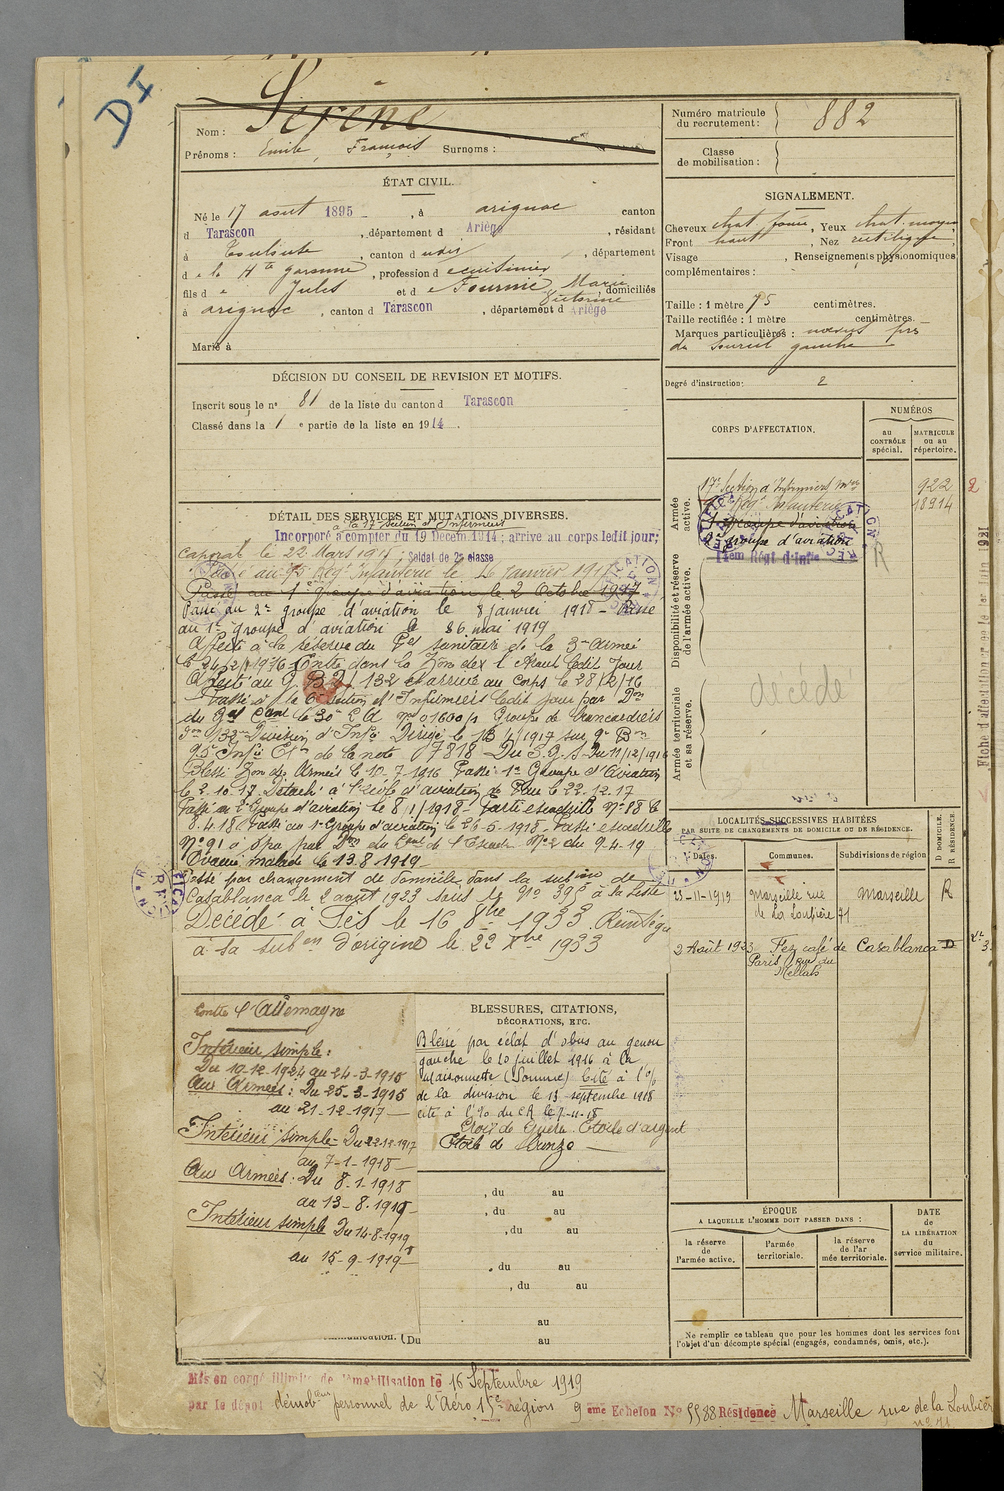 DI
Nom : Serène
Prénoms : Emile, François Surnoms :
Numéro matricule du recrutement : 882
Classe de mobilisation :
ÉTAT CIVIL.
Né le 17 août 1895, à arignac canton
d Tarascon, département d Ariège, résidant
à Toulouse, canton d udit, département
d e la Hte garonne, profession d e cuisinier
fils d e Jules et d e Fournié Marie Victorine domiciliés
à arignac, canton d Tarascon, département d Ariège
Marié à
DÉCISION DU CONSEIL DE REVISION ET MOTIFS.
Inscrit sous le n° 81 de la liste du canton d Tarascon
Classé dans la 1 e partie de la liste en 1914.
DÉTAIL DES SERVICES ET MUTATIONS DIVERSES.
à la 17e Section d'Infirmiers
Incorporé à compter du 19 Décem. 1914 ; arrivé au corps ledit jour;
Caporal le 22 Mars 1915 ; Soldat de 2e classe
Passé au 95 Régt Infanterie le 16 Janvier 1917
Passé au 1er groupe d'aviation le 2 Octobre 1917
Passé au 2e groupe d'aviation le 8 Janvier 1918 - Passé
au 1er groupe d'aviation le 26 mai 1919
Affecté à la réserve du Pel sanitaire de la 3e armée
le 24/2/1916 Entre dans la Zone des l'Avant ledit jour
Affecté au G. B. D. 132 et arrivé au Corps le 28/2/16
Passé à la 6e Section d'Infirmiers ledit jour par Don
du Gal Cant le 30e C.A. no 01600/1 Groupe de brancardiers
132e Division d'Infie Dirigé le 16/1/1917 sur 9e Bon
95e Infie Eon de la note 17818 Du S.G.S. Du 11/12/1916
Blessé Zon des Armées le 10-7-1916 Passé 1er Groupe d'Aviation
le 2.10.17 Détaché à l'école d'aviation de Pau le 22.12.17
Passé au 2e Groupe d'aviation le 8/1/1918 - Passé escadrille No 88 le
8.4.18 Passé au 1er Groupe d'aviation le 26-5-1918 - Passé escadrille
No 91 par Don du Cant de l'Escad. No 2 du 9-4-19
Evacué malade le 13.8.1919
Passé par changement de domicile dans la subion de
Casablanca le 2 août 1923 sous le No 395 à la liste
Décédé à Fès le 16 8bre 1933 Réintégré
à sa subon d'origine le 22 Xbre 1933
Contre l'Allemagne
Intérieur simple :
Du 19-12-1914 au 24-3-1915
Aux Armées : Du 25-3-1915
au 21-12-1917
Intérieur simple - Du 22-12-1917
au 7-1-1918
Aux Armées : Du 8-1-1918
au 13-8-1919
Intérieur simple Du 14-8-1919
au 15-9-1919
BLESSURES, CITATIONS,
DÉCORATIONS, ETC.
Blessé par éclat d'obus au genou
gauche le 10 juillet 1916 à la
Maisonnette (Somme) Cité à l'o/
de la division le 13 septembre 1918
cité à l'o. du CR le 7-11-18
Croix de Guerre Etoile d'argent
Etoile de Bronze
, du au
, du au
, du au
, du au
, du au
au
(Du au
SIGNALEMENT.
Cheveux chat. foncé, Yeux chat. moyen
Front haut, Nez rectiligne,
Visage , Renseignements physionomiques
complémentaires :
Taille : 1 mètre 75 centimètres.
Taille rectifiée : 1 mètre centimètres.
Marques particulières : naevus près
du sourcil gauche
Degré d'instruction : 2
CORPS D'AFFECTATION.
NUMÉROS
au CONTRÔLE spécial.
MATRICULE ou au répertoire.
Armée active.
17e Section d'Infirmiers Mres 922
Régt Infanterie 18914
1er groupe d'aviation
2e groupe d'aviation
14em Régt d'Infie
R
Disponibilité et réserve de l'armée active.
Armée territoriale et sa réserve.
Décédé
LOCALITÉS SUCCESSIVES HABITÉES
PAR SUITE DE CHANGEMENTS DE DOMICILE OU DE RÉSIDENCE.
Dates. Communes. Subdivisions de région D DOMICILE. R RÉSIDENCE.
23-11-1919 Marseille rue de La Loubière 71 Marseille R
2 Août 1923 Fez café de Paris rue du Mellah Casablanca D
ÉPOQUE
A LAQUELLE L'HOMME DOIT PASSER DANS :
la réserve de l'armée active.
l'armée territoriale.
la réserve de l'armée territoriale.
DATE de LA LIBÉRATION du service militaire.
Ne remplir ce tableau que pour les hommes dont les services font
l'objet d'un décompte spécial (engagés, condamnés, omis, etc.).
Mis en congé illimité de démobilisation le 16 Septembre 1919
par le dépôt démobeur personnel de l'Aéro 15e région 9 ème Echelon No 5588 Résidence Marseille rue de la Loubière
no 71